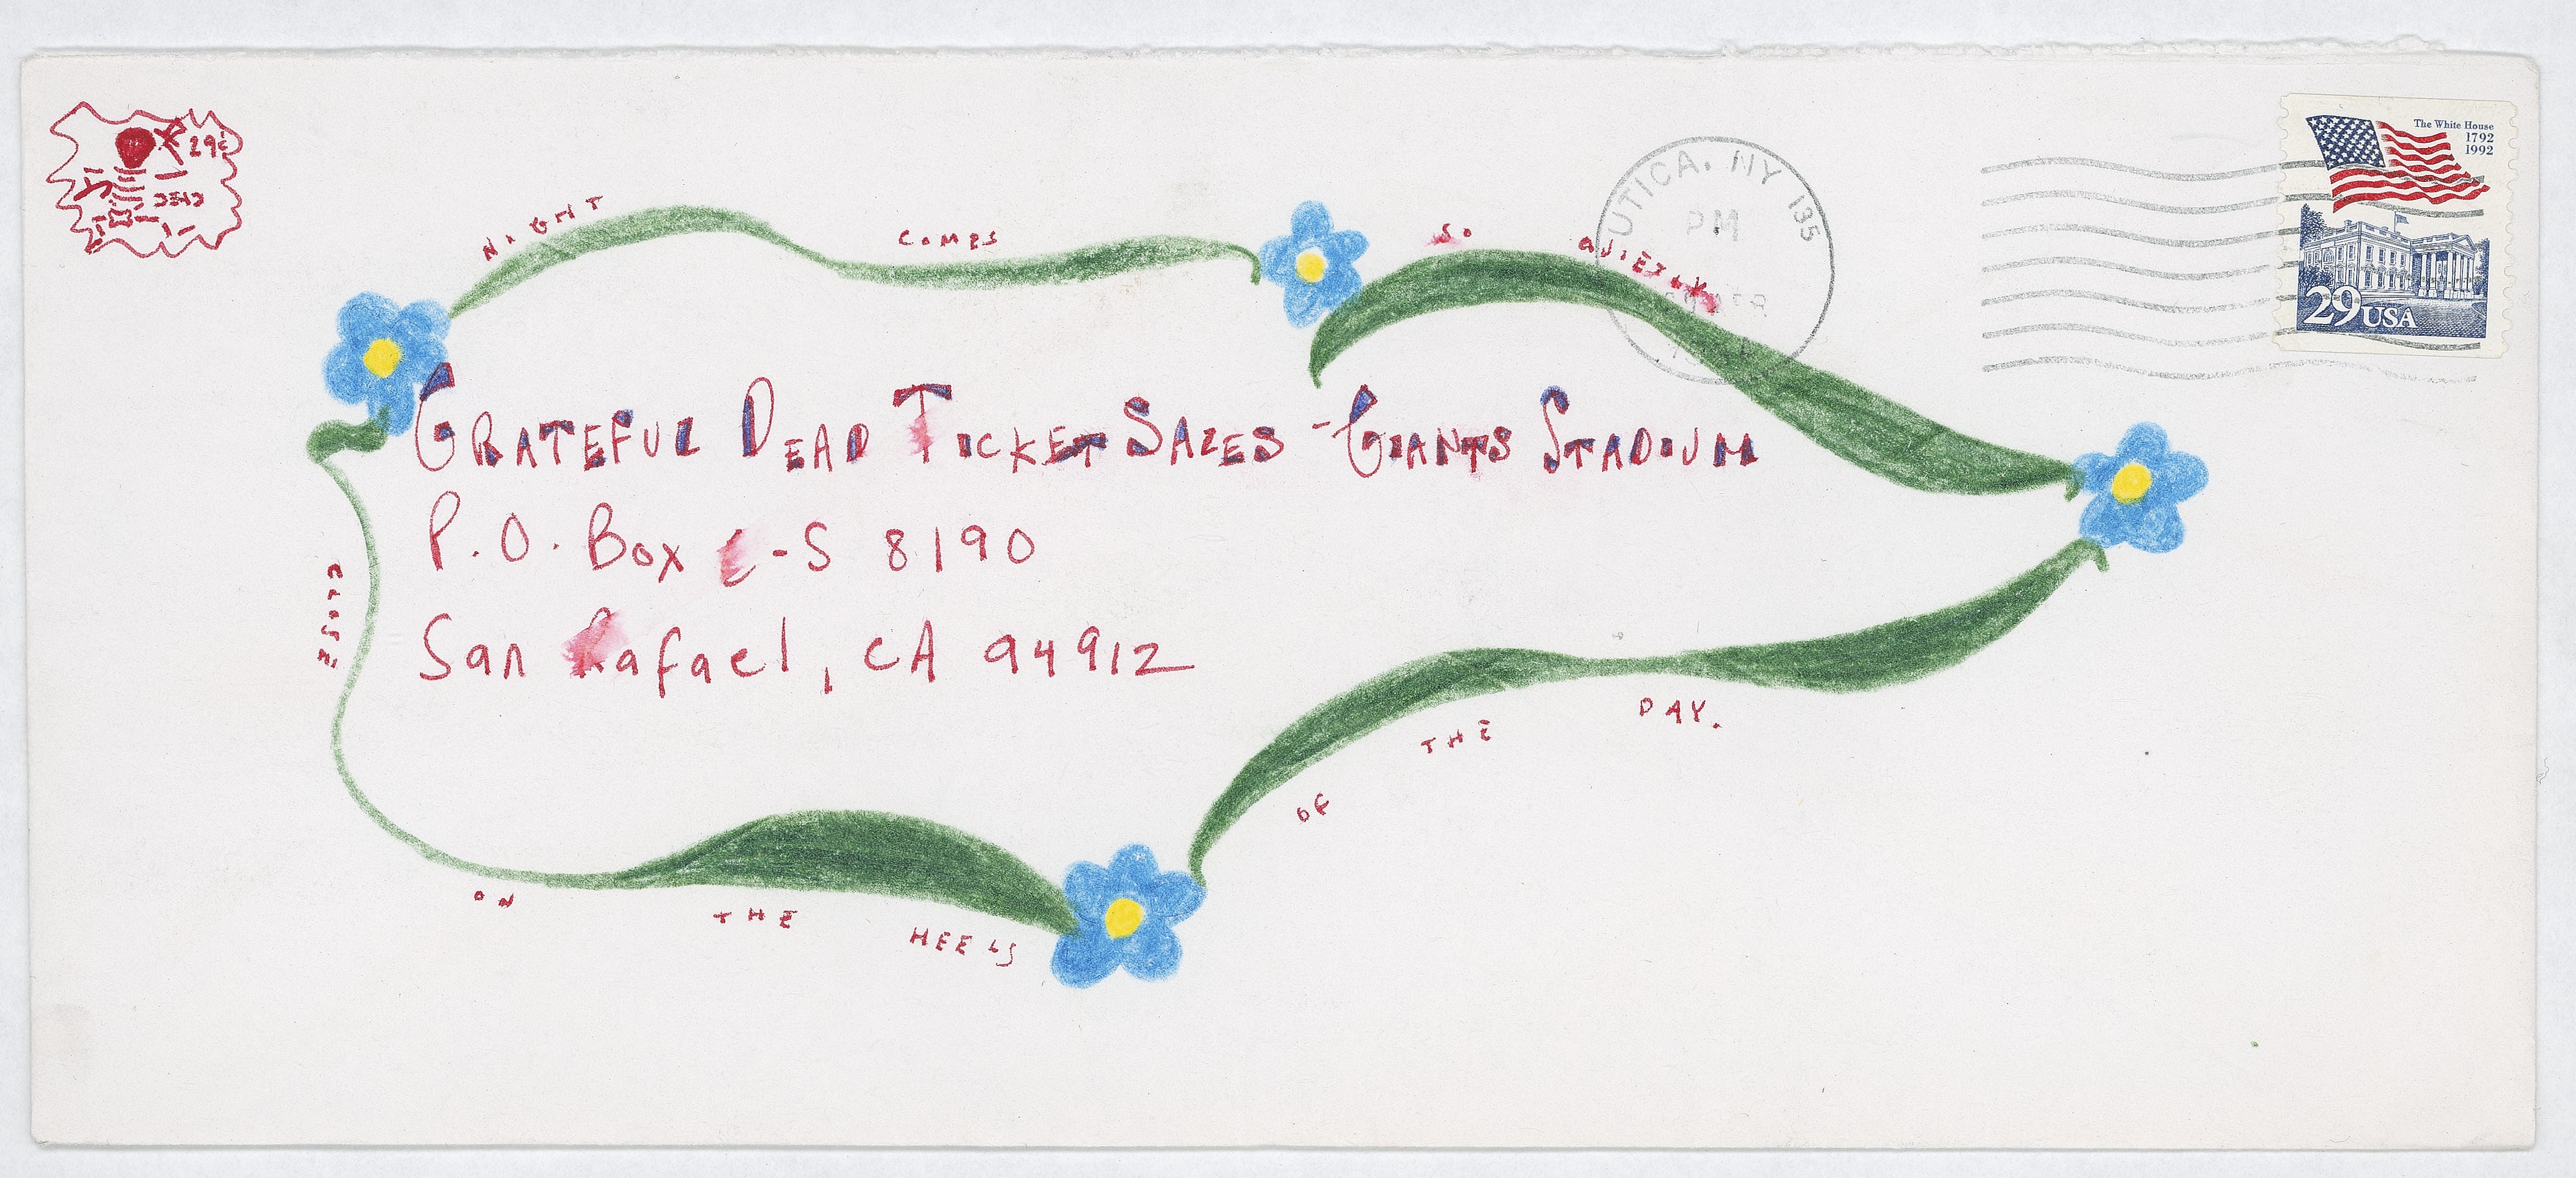 29¢
NIGHT COMES SO QUIETLY
UTICA, NY 135
PM
The White House
1792
1992
29 USA
GRATEFUL DEAD TICKET SALES - GIANTS STADIUM
P.O. Box C-S 8190
San Rafael, CA 94912
CLOSE ON THE HEELS OF THE DAY.